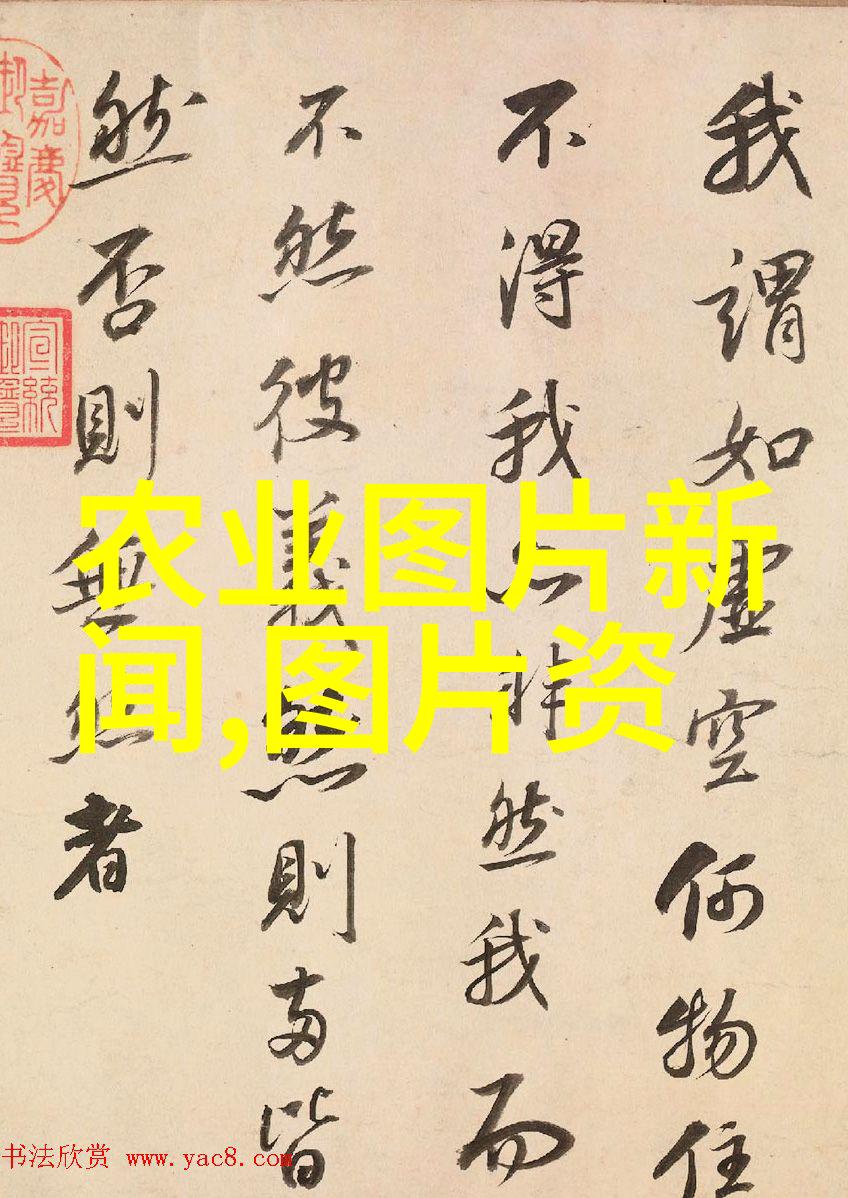 我謂如虛空何物住
不得我非然我而
不然彼義然則两皆
然否則無然者
嘉慶
宣統
农业图片新
闻,图片资
书法欣赏 www.yac8.com